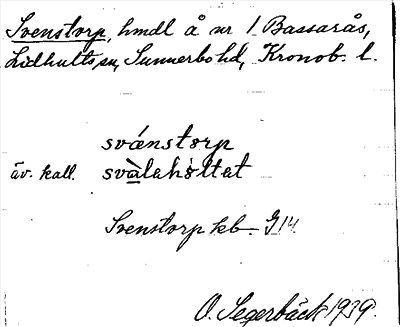 Svenstorp, hmdl å nr 1 Bassarås,
Lidhults sn, Sunnerbo hd, Kronob. l.
svánstorp
äv. kall. svàlahòltet
Svenstorp kb. G14
O. Segerbäck 1939.